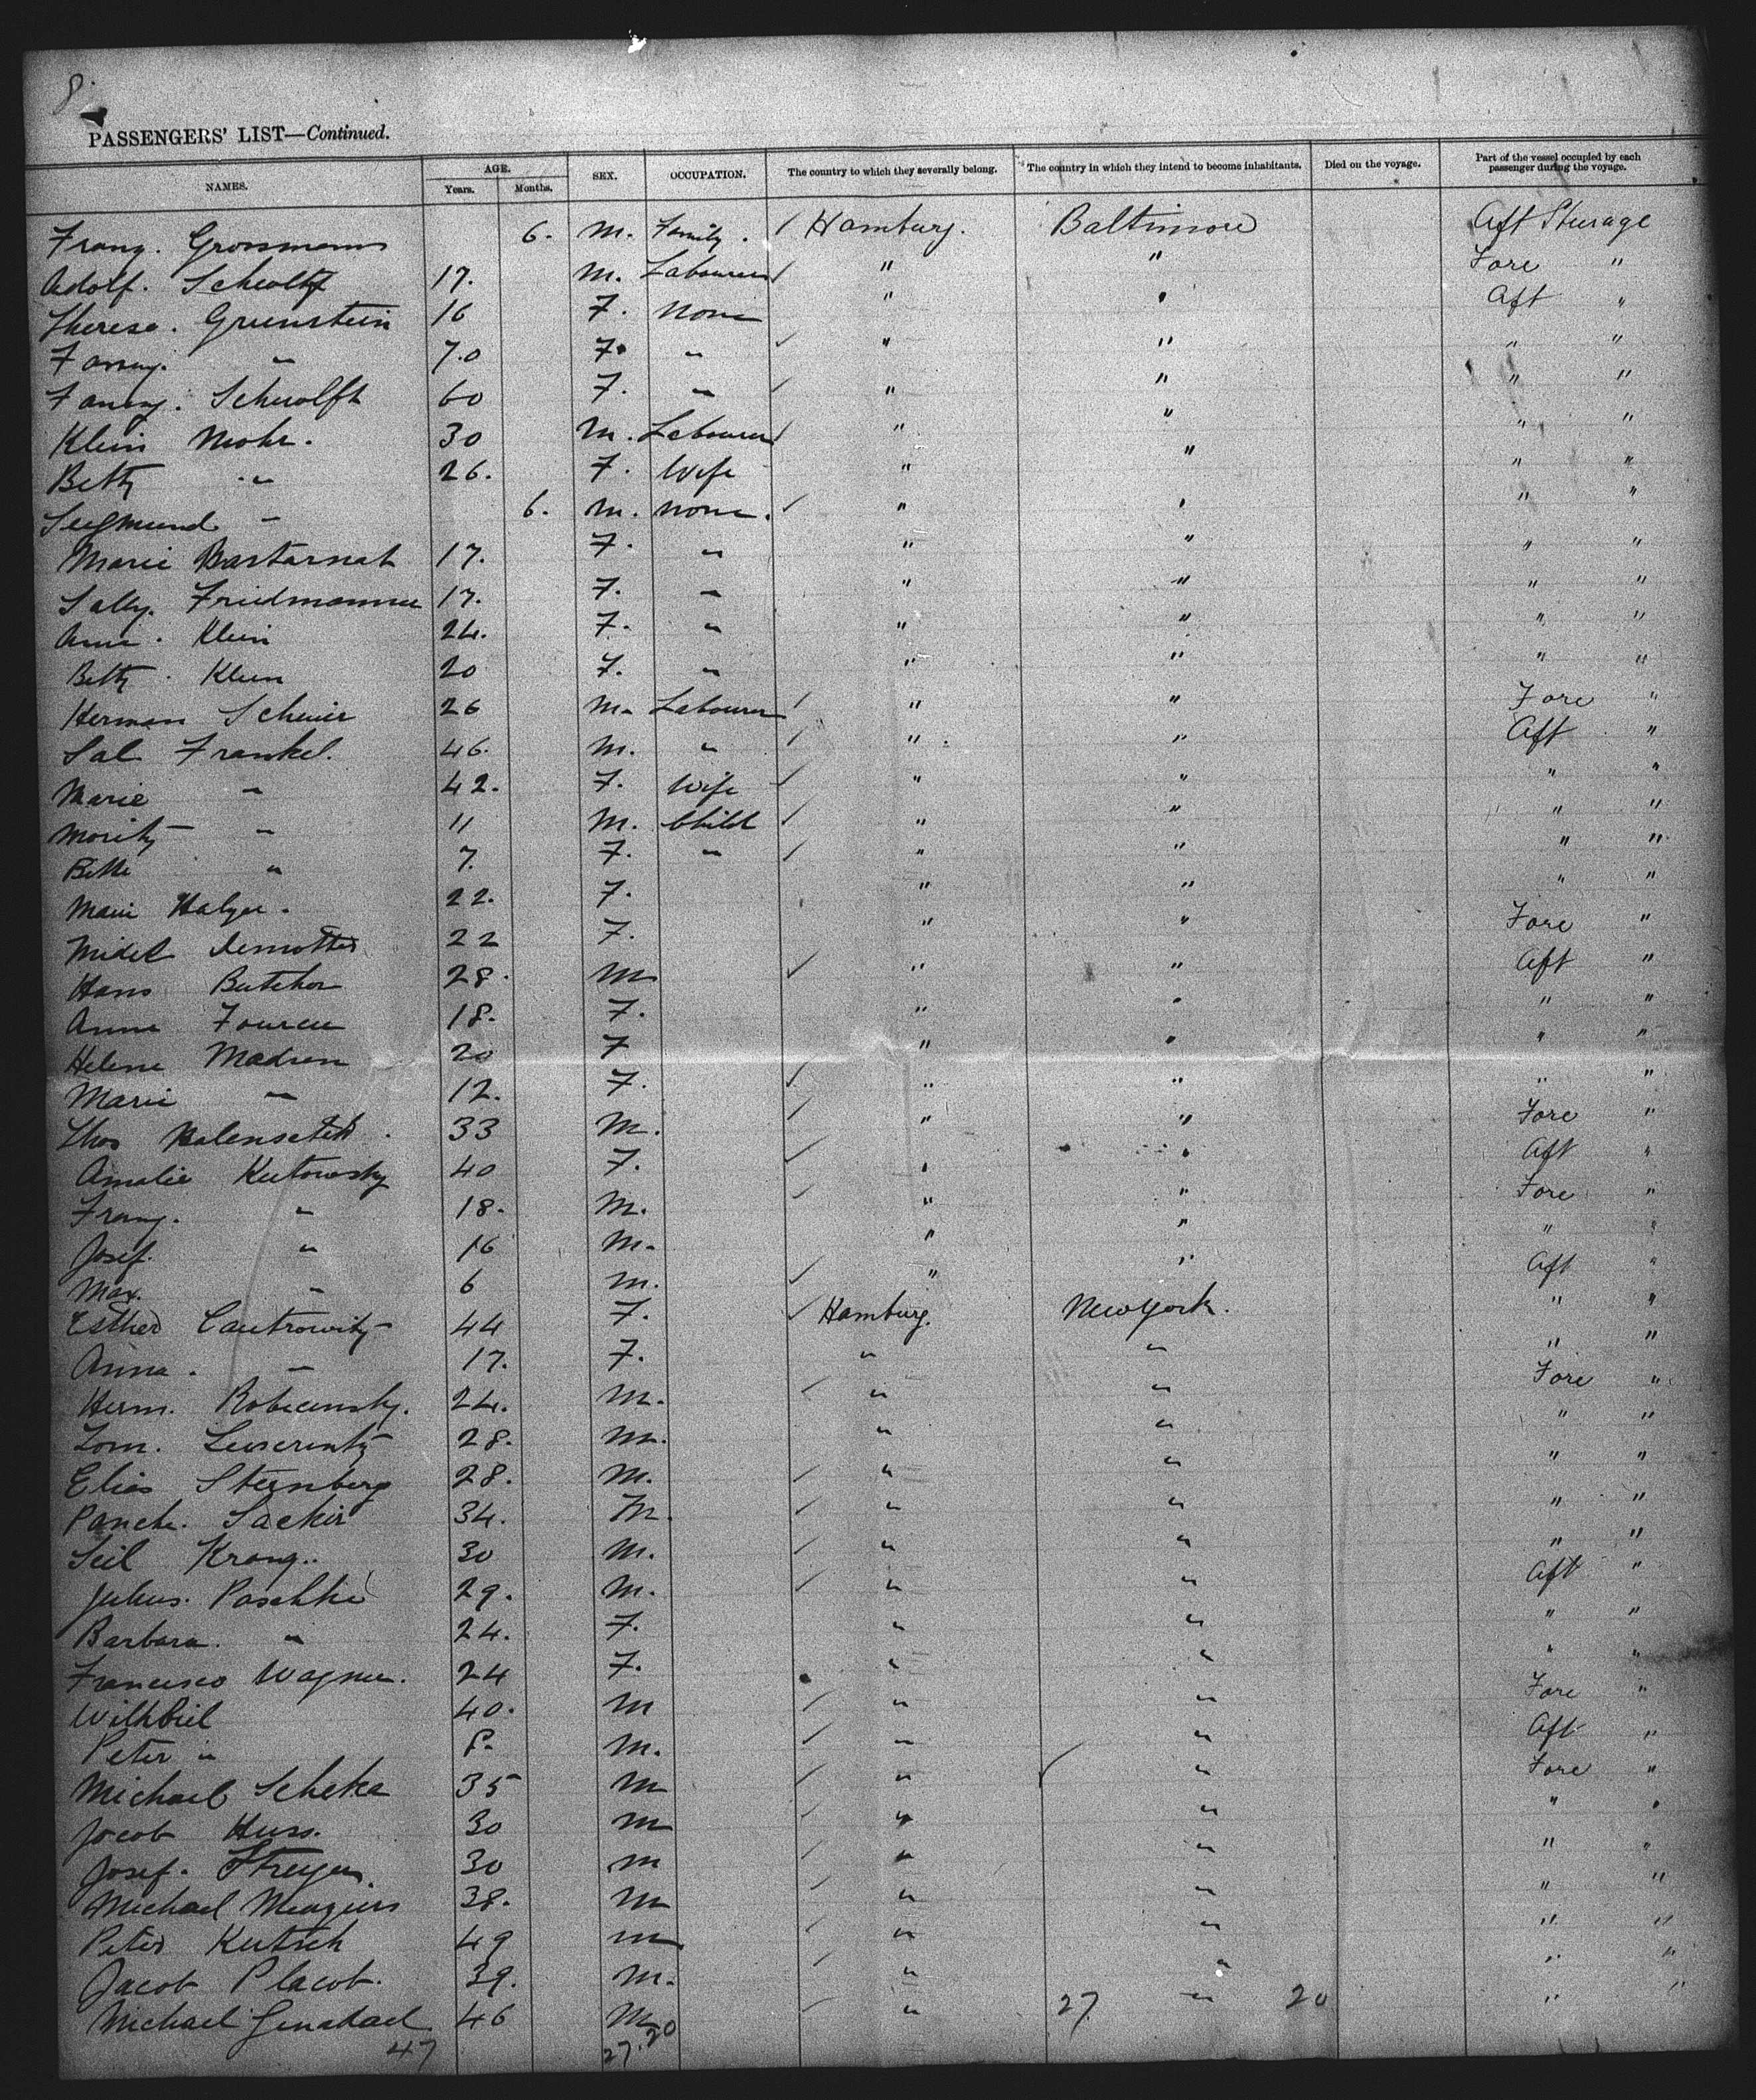 8.
PASSENGERS' LIST—Continued.
NAMES. AGE. Years. Months. SEX. OCCUPATION. The country to which they severally belong. The country in which they intend to become inhabitants. Died on the voyage. Part of the vessel occupied by each passenger during the voyage.
Franz. Grossmann 6. M. Family. Hamburg. Baltimore Aft Sturage
Adolf. 17. M. Labourer " " Fore "
Therese. Grunstein 16 F. None " " Aft "
Fanny. " 70 F. " " " " "
Fanny. 60 F. " " " " "
Klein Mohr. 30 M. Labourer " " " "
Betty " 26. F. Wife " " " "
Seegmund " 6. M. none. " " " "
Marie Bastarnak 17. F. " " " " "
Sally. Friedmanner 17. F. " " " " "
Anna. Klein 24. F. " " " " "
Betty. Klein 20 F. " " " " "
Herman Scheuer 26 M. Labourer " " Fore "
Sal Frankel. 46. M. " " " Aft "
Marie " 42. F. Wife " " " "
Moritz " 11 M. Child " " " "
Bette " 7. F. " " " " "
Marie 22. F. " " " "
22 F. " " Fore "
Hans Butchor 28. M " " Aft "
Anna 18. F. " " " "
Helene Madsen 20 F " " " "
Marie " 12. F. " " " "
Thos 33 M. " " Fore "
Amalie Kutowsky 40 F. " " Aft "
Franz. " 18. M. " " Fore "
Josef. " 16 M. " " " "
Max. " 6 M. " " Aft "
Esther Cantrowitz 44 F. Hamburg. New York. " "
Anna. " 17. F. " " " "
Herm. Robicensky. 24. M. " " Fore "
28. M. " " " "
Elias Steenberg 28. M. " " " "
Sackir 34. M. " " " "
Seil Kranz.. 30 M. " " " "
Julius. Paschke 29. M. " " Aft "
Barbara. " 24. F. " " " "
Francisco Wagner. 24 F. " " " "
40. M " " Fore "
Peter " 8. M. " " Aft "
Michael Scheka 35 M " " Fore "
Jacob Huss. 30 M " " " "
Josef. Streyer 30 M " " " "
Michael 38. M " " " "
Peter Kutsch 49 M " " " "
Jacob Placot. 39. M. " " " "
Michael 46 M " 27. " 20 " "
47 27.20